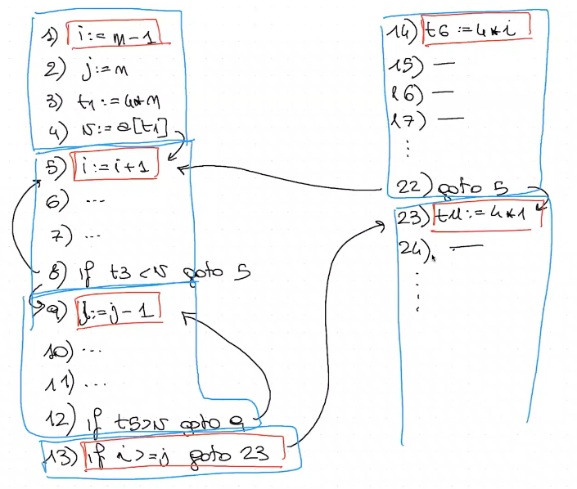 1) i:= m-1
2) j:= n
3) t1:= 4*n
4) v:= a[t1]
5) i:= i+1
6) ...
7) ...
8) if t3 < v goto 5
9) j:= j-1
10) ...
11) ...
12) if t5>v goto 9
13) if i>=j goto 23
14) t6 := 4*i
15) —
16) —
17) —
⋮
22) goto 5
23) t11:= 4*1
24) —
⋮